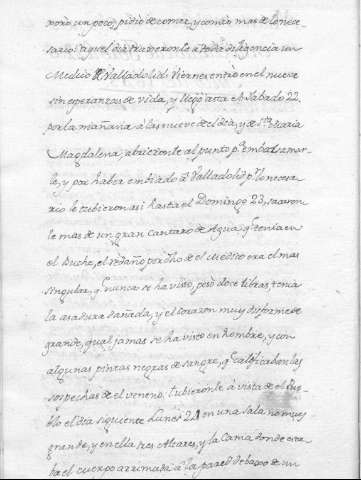 roró un poco, pidió de comer, y comió mas de lo nece-
sario: aquel dia truxeronle a toda diligencia un
Medico de Valladolid: Viernes entró en el nueve
sin esperanzas de vida, y llegó asta el Sabado 22,
por la mañana à las nueve de el dia, y de Sta Maria
Magdalena; abrieronle al punto pa embalsamar-
le, y por haber embiado à Valladolid pr lo necesa-
rio le tubieron asi hasta el Domingo 23, sacaron-
le mas de un gran cantaro de Agua, qe tenia en
el Buche, el redaño por dho de el Medico era el mas
singular, qe nunca se ha visto, pesó doce libras, tenia
la asadura dañada, y el corazon muy disforme de
grande, qual jamas se ha visto en hombre, y con
algunas pintas negras de sangre, qe calificaban las
sospechas de el veneno: tubieronle à vista de el Pue-
blo el dia siguiente Lunes 24 en una sala no muy
grande, y en ella tres Altares, y la Cama donde esta-
ba el cuerpo arrimada à la pared debaxo de un